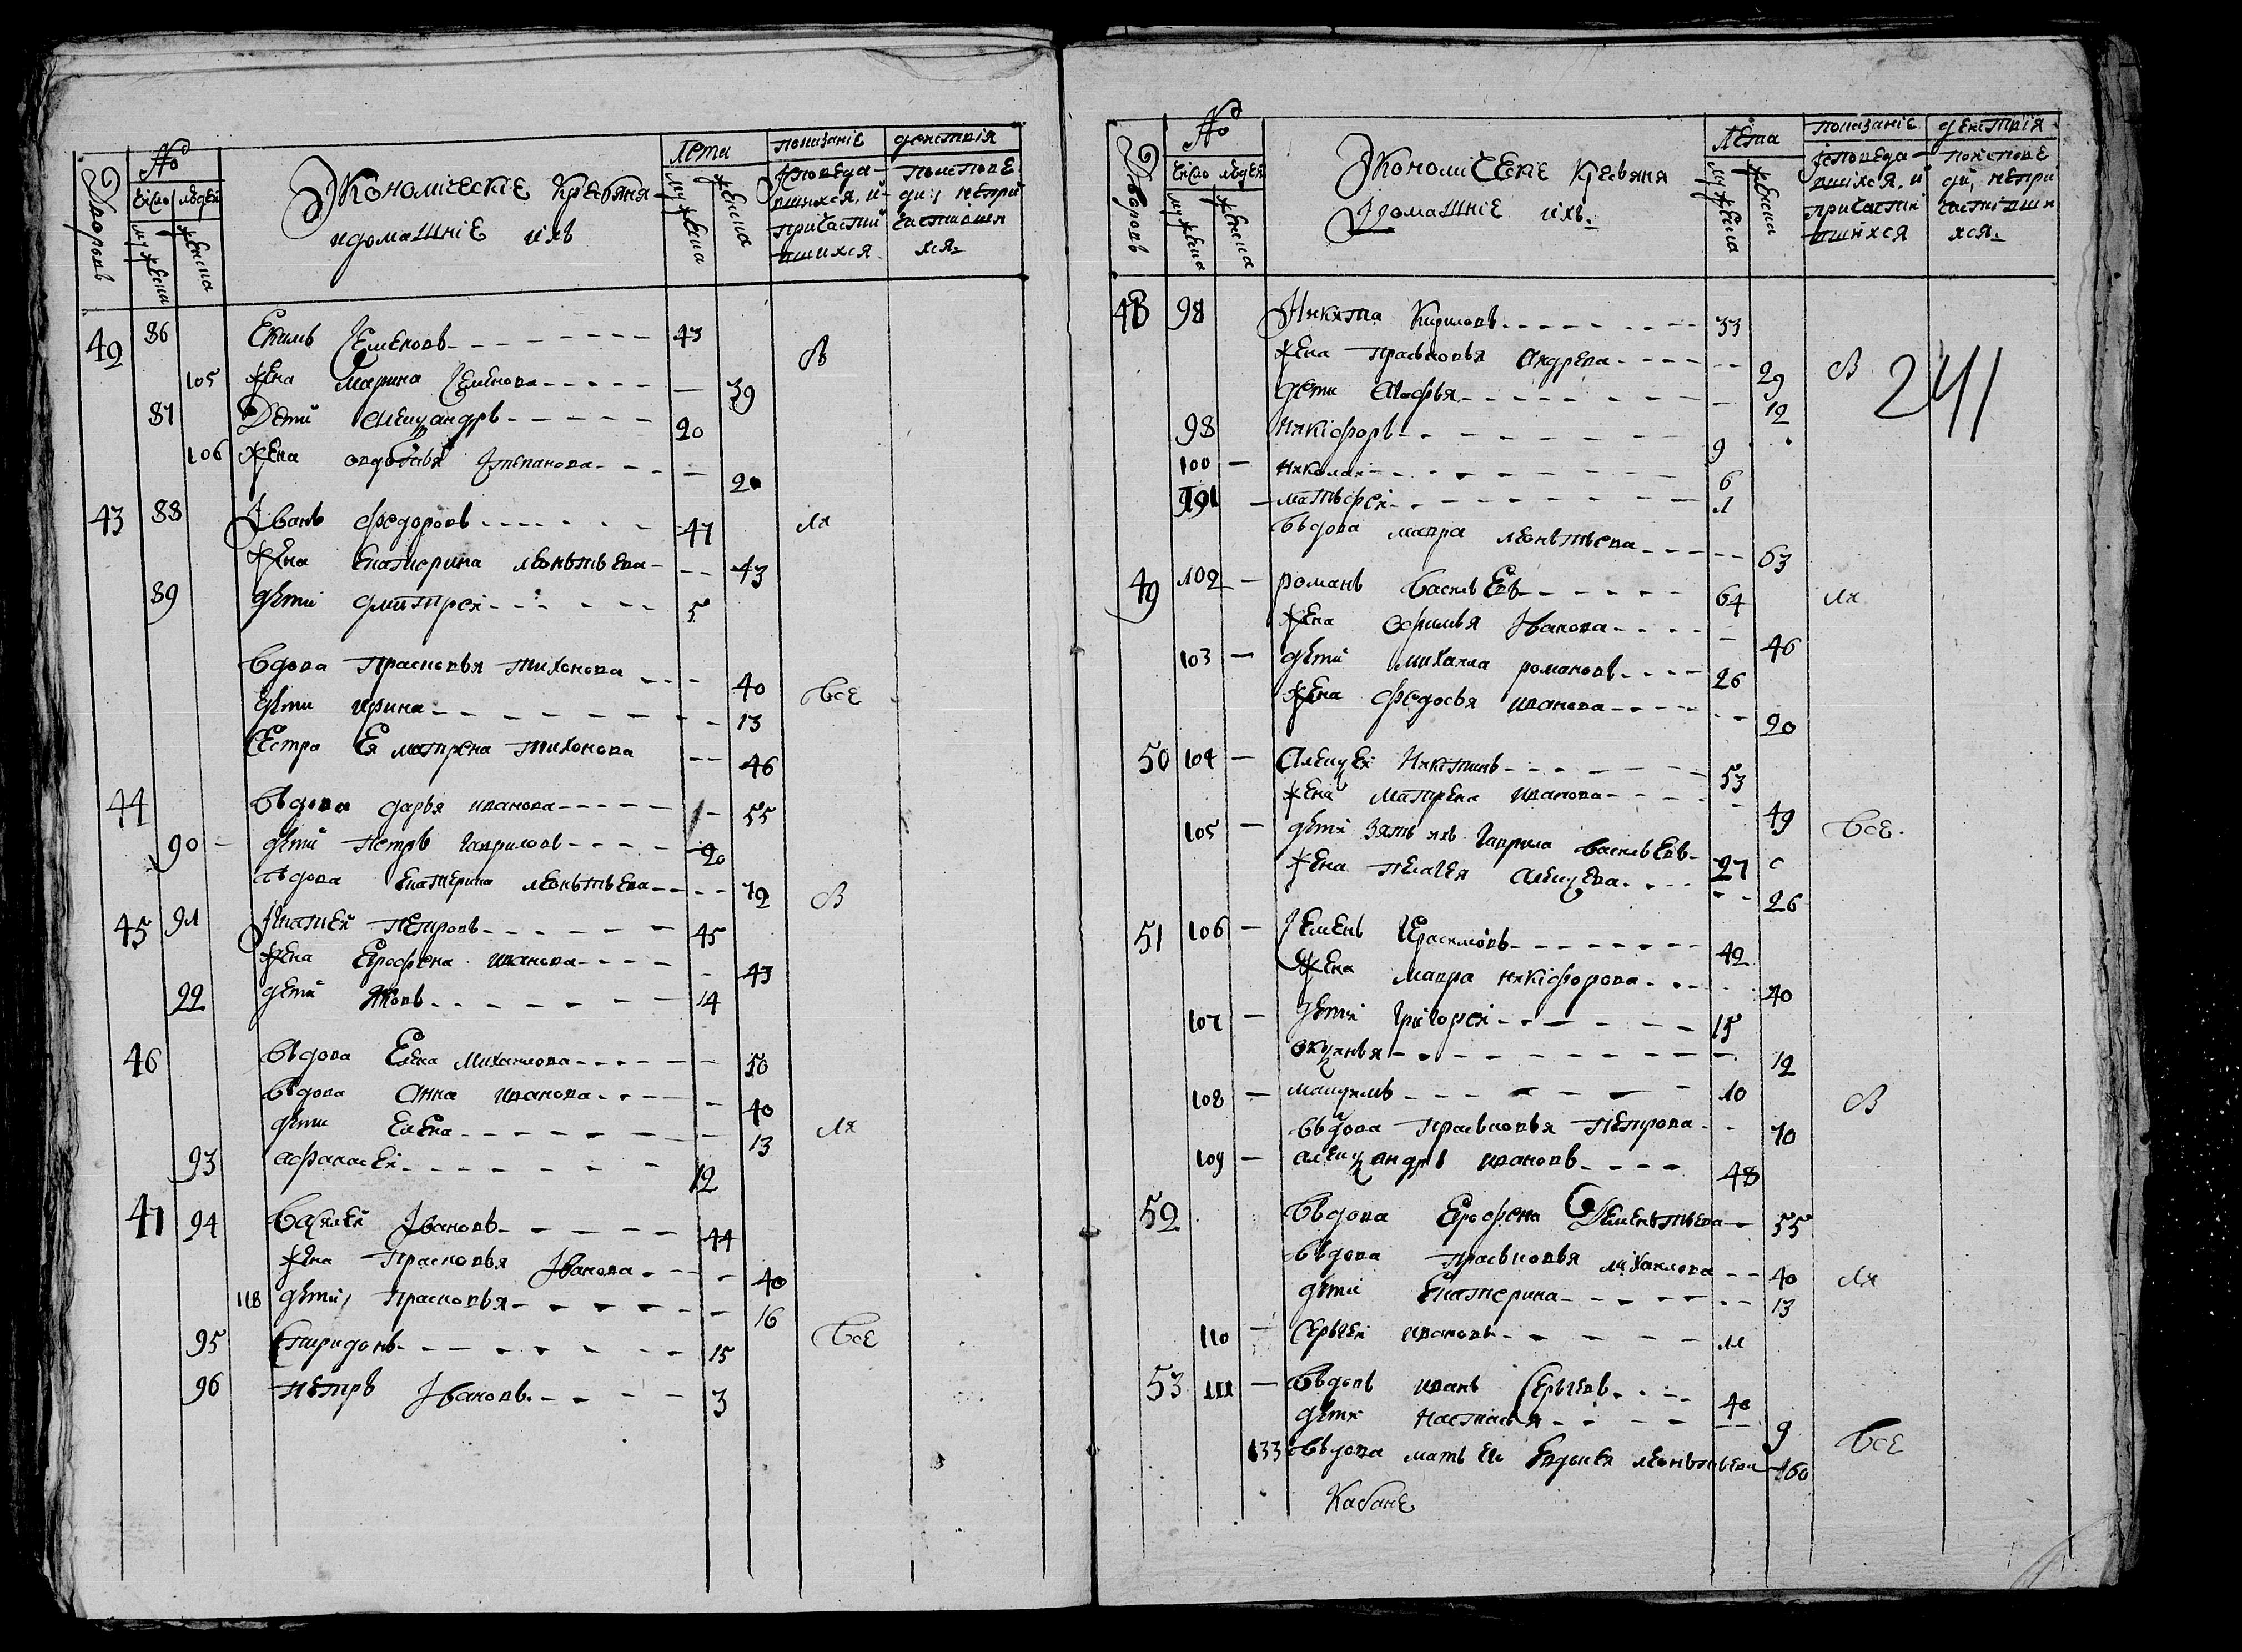 №
Лета
показаніе
действія
Дворовъ
число людей
мужеска
женска
Экономическіе крестьяня
и домашніе ихъ
мужеска
женска
исповеда-
вшихся, и
причасти
вшихся
по испове
ди, непри
частивши
хся.
42 86 Екимъ Семеновъ 43 В
105 жена Марина Семенова 39
87 Дети Александръ 20
106 жена овдотья Степанова 20
43 88 Іванъ Федоровъ 47 ля
жена Екатерина леонтьева 43
89 дети дмитрей 5
вдова Прасковья Тихонова 40 Все
дети ирина 13
Сестра Ея матрена Тихонова 46
44 вдова дарья иванова 55
90 дети Петръ гавриловъ 20
вдова Екатерина леонтьева 72 В
45 91 Игнатей Петровъ 45
жена Ерофена иванова 43
92 дети Яковъ 14
46 вдова Елена михаилова 50
вдова Анна иванова 40
дети Елена 13 ля
93 афанасей 12
47 94 Василей Івановъ 44
жена Прасковья Іванова 40
118 дети Прасковья 16
95 Спиридонъ 15 Все
96 Петръ Івановъ 3
№
Лета
показаніе
действія
Дворовъ
число людей
мужеска
женска
Экономическіе крестьяня
и домашніе ихъ.
мужеска
женска
исповеда-
вшихся, и
причасти
вшихся
по испове
ди, непри
частивши
хся.
48 98 Никита Кириловъ 33
жена Прасковья Андреева 29 В 241
дети Агафья 12
98 никіфоръ 9
100 николай 6
101 матьфей 1
вдова мавра леонтьева 63
49 102 романъ васильевъ 64 ля
жена офимья Іванова 46
103 дети михаила романовъ 26
жена Федосья иванова 20
50 104 Алексей Никитинъ 53
жена матрена иванова 49 Все.
105 дети зять ихъ гаврила васильевъ 27
жена пелагея Алексева 26
51 106 Семенъ Герасимовъ 42
жена мавра никіфорова 40
107 дети григорей 15
окулинья 12
108 10 В
вдова Прасковья Петрова 70
109 александръ ивановъ 48
52 вдова Ерофена Дементьева 55
вдова Прасковья михаилова 40 ля
дети Екатерина 13
110 Сергей ивановъ 11
53 111 вдовъ иванъ Сергеевъ 40
дети настасья 9 Все
133 вдова мать его Евдокея леонтьева 60
Кабане